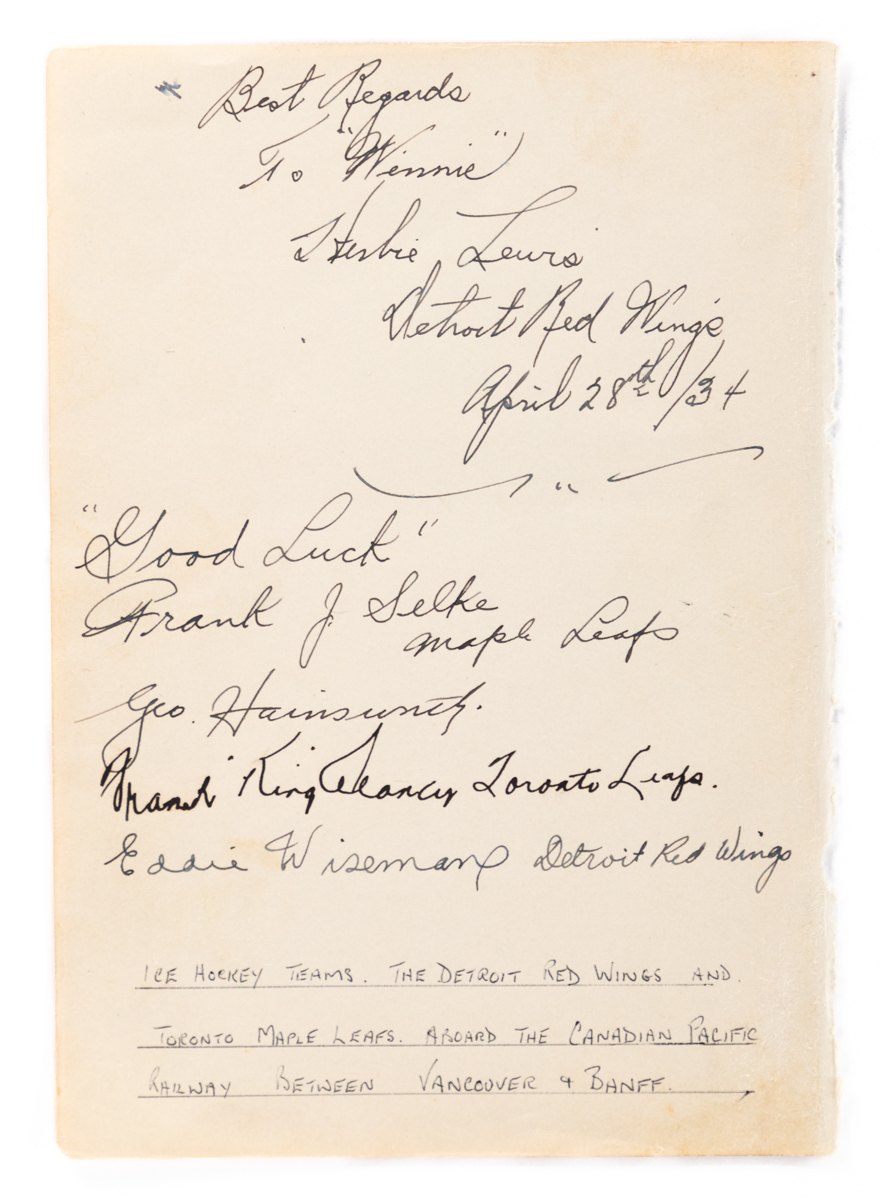 Best Regards
To "Winnie"
Herbie Lewis
Detroit Red Wings
April 28th /34
"Good Luck"
Frank J. Selke
Maple Leafs
Geo. Hainsworth.
Frank "King" Clancy Toronto Leafs.
Eddie Wiseman Detroit Red Wings
ICE HOCKEY TEAMS. THE DETROIT RED WINGS AND.
TORONTO MAPLE LEAFS. ABOARD THE CANADIAN PACIFIC
RAILWAY BETWEEN VANCOUVER & BANFF.